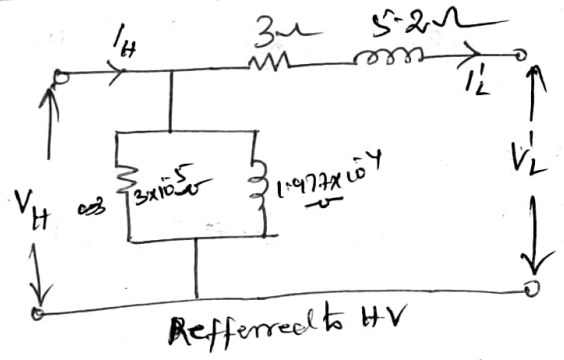 I_H
3Ω
5.2Ω
I'_L
V_H
3×10⁻⁵ ℧
1.977×10⁻⁴
℧
V'_L
Refferred to HV